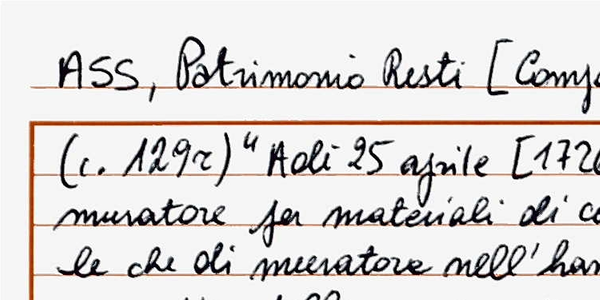 ASS, Patrimonio Resti [Comp
(c. 129r) "Adi 25 aprile [172
muratore per materiali di c
le che di muratore nell'han